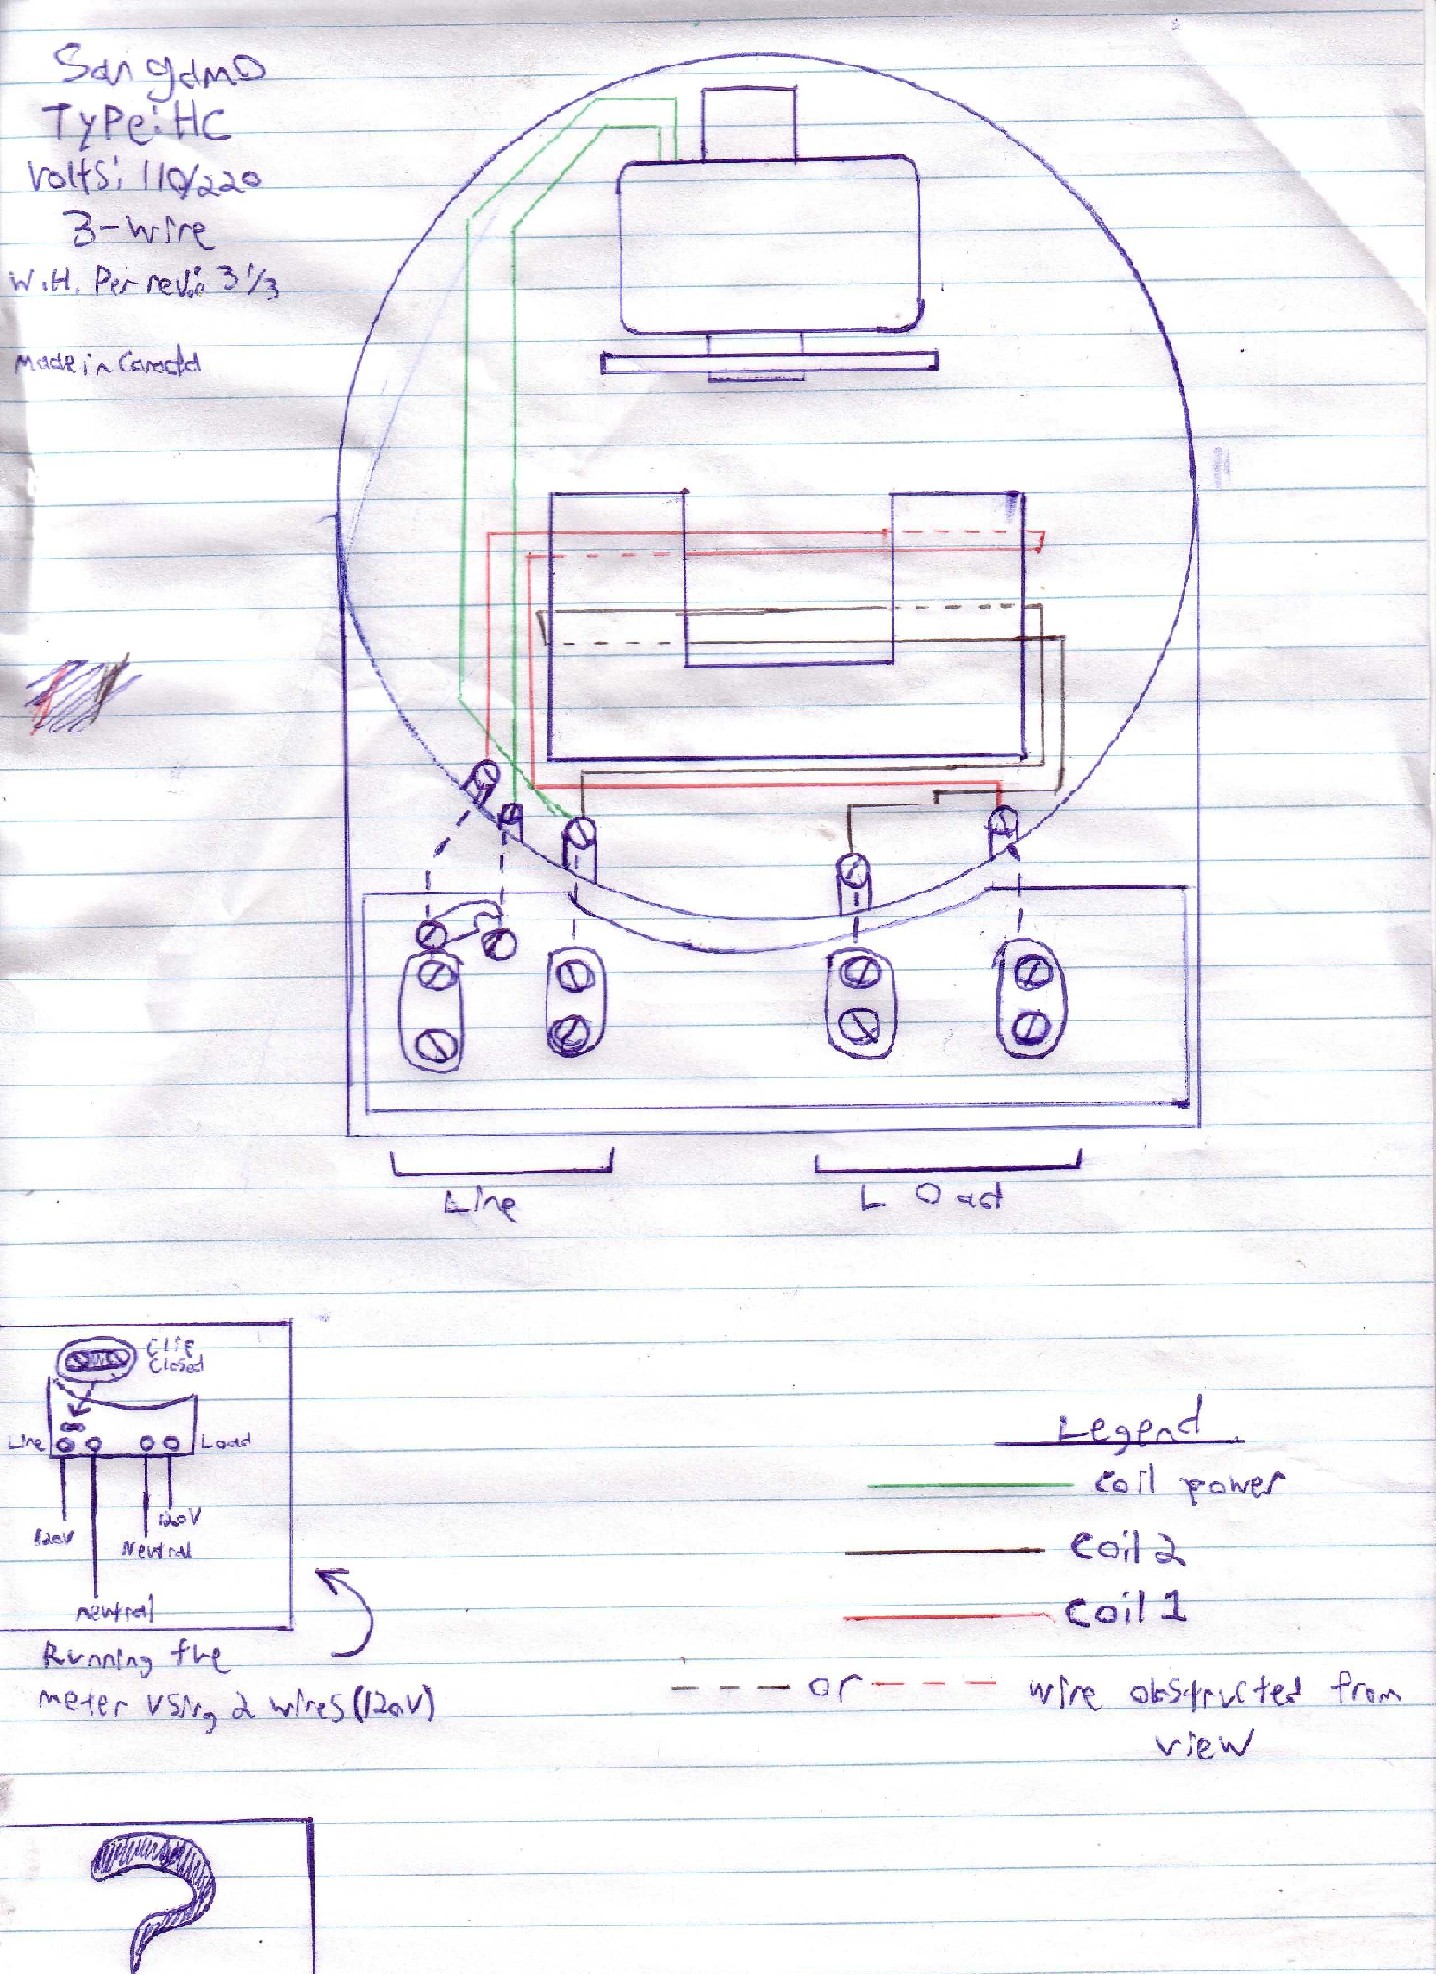 Sangamo
Type: HC
Volts: 110/220
3-wire
W.H. Per rev.: 3 1/3
Made in Canada
Line
Load
Clip
Closed
Line
Load
120V
120V
Neutral
neutral
Running the
meter using 2 wires (120V)
Legend
coil power
Coil 2
Coil 1
or
wire obstructed from
view
?